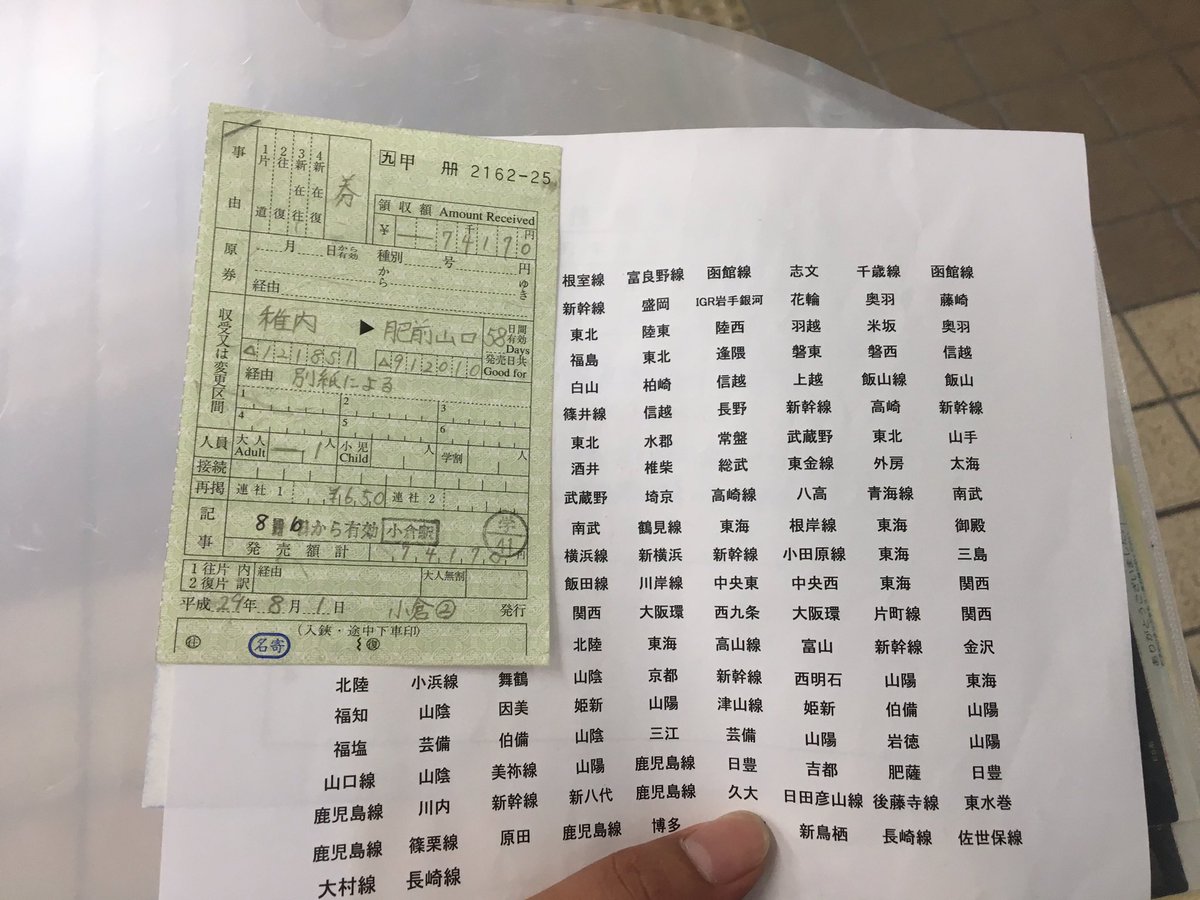 九 甲 册 2162-25
事由
1片道
2往復
3新在往
4新在復
券
領収額 Amount Received
¥ 一 7千4170円
原券
月 日から有効 種別 号 円
から ゆき
経由
収受又は変更区間
稚内 ▶ 肥前山口
58日間有効 Days
発売日共 Good for
△121851 △912010
経由 別紙による
1 2 3
4 5 6
人員 大人 Adult 一1人 小児 Child 人 学割 人
接続
再掲 連社1 ¥1650 連社2
記事
から有効 小倉駅 学
発売額計 74170円
1往片 内 経由 大人無割
2復片 訳
平成29年8月1日 小倉② 発行
(入鋏・途中下車印)
往 名寄 復
根室線 富良野線 函館線 志文 千歳線 函館線
新幹線 盛岡 IGR岩手銀河 花輪 奥羽 藤崎
東北 陸東 陸西 羽越 米坂 奥羽
福島 東北 逢隈 磐東 磐西 信越
白山 柏崎 信越 上越 飯山線 飯山
篠井線 信越 長野 新幹線 高崎 新幹線
東北 水郡 常盤 武蔵野 東北 山手
酒井 椎柴 総武 東金線 外房 太海
武蔵野 埼京 高崎線 八高 青海線 南武
南武 鶴見線 東海 根岸線 東海 御殿
横浜線 新横浜 新幹線 小田原線 東海 三島
飯田線 川岸線 中央東 中央西 東海 関西
関西 大阪環 西九条 大阪環 片町線 関西
北陸 東海 高山線 富山 新幹線 金沢
北陸 小浜線 舞鶴 山陰 京都 新幹線 西明石 山陽 東海
福知 山陰 因美 姫新 山陽 津山線 姫新 伯備 山陽
福塩 芸備 伯備 山陰 三江 芸備 山陽 岩徳 山陽
山口線 山陰 美祢線 山陽 鹿児島線 日豊 吉都 肥薩 日豊
鹿児島線 川内 新幹線 新八代 鹿児島線 久大 日田彦山線 後藤寺線 東水巻
鹿児島線 篠栗線 原田 鹿児島線 博多 新鳥栖 長崎線 佐世保線
大村線 長崎線